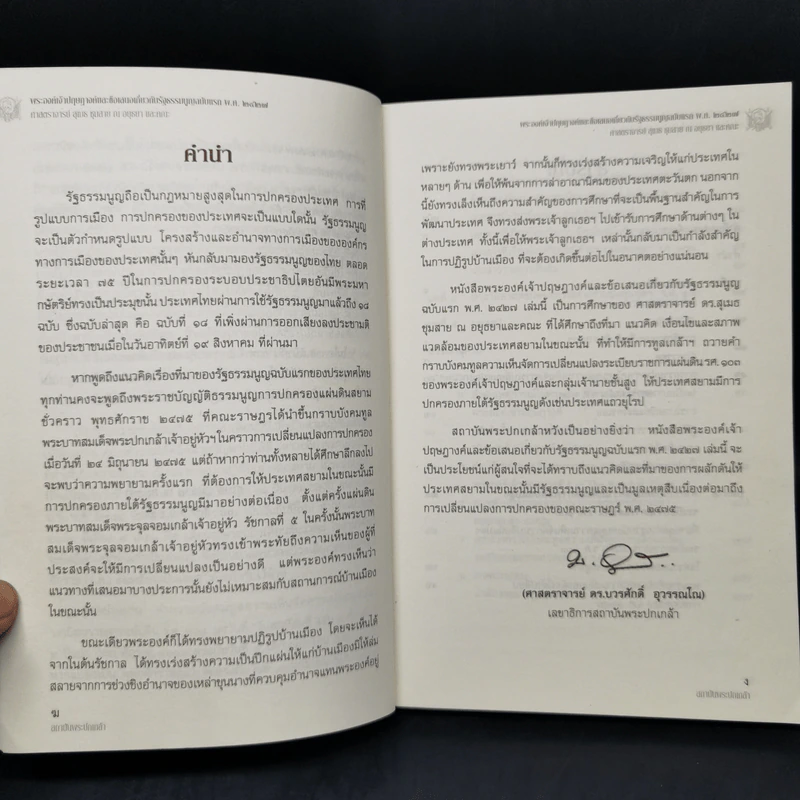 พระองค์เจ้าปฤษฎางค์และข้อเสนอเกี่ยวกับรัฐธรรมนูญฉบับแรก พ.ศ. ๒๔๒๗
ศาสตราจารย์ สุเมธ ชุมสาย ณ อยุธยา และคณะ
คำนำ
รัฐธรรมนูญถือเป็นกฎหมายสูงสุดในการปกครองประเทศ การที่
รูปแบบการเมือง การปกครองของประเทศจะเป็นแบบใดนั้น รัฐธรรมนูญ
จะเป็นตัวกำหนดรูปแบบ โครงสร้างและอำนาจทางการเมืองขององค์กร
ทางการเมืองของประเทศนั้นๆ หันกลับมามองรัฐธรรมนูญของไทย ตลอด
ระยะเวลา ๗๕ ปีในการปกครองระบอบประชาธิปไตยอันมีพระมหา
กษัตริย์ทรงเป็นประมุขนั้น ประเทศไทยผ่านการใช้รัฐธรรมนูญมาแล้วถึง ๑๘
ฉบับ ซึ่งฉบับล่าสุด คือ ฉบับที่ ๑๘ ที่เพิ่งผ่านการออกเสียงลงประชามติ
ของประชาชนเมื่อในวันอาทิตย์ที่ ๑๙ สิงหาคม ที่ผ่านมา
หากพูดถึงแนวคิดเรื่องที่มาของรัฐธรรมนูญฉบับแรกของประเทศไทย
ทุกท่านคงจะพูดถึงพระราชบัญญัติธรรมนูญการปกครองแผ่นดินสยาม
ชั่วคราว พุทธศักราช ๒๔๗๕ ที่คณะราษฎรได้นำขึ้นกราบบังคมทูล
พระบาทสมเด็จพระปกเกล้าเจ้าอยู่หัวฯ ในคราวการเปลี่ยนแปลงการปกครอง
เมื่อวันที่ ๒๔ มิถุนายน ๒๔๗๕ แต่ถ้าหากว่าท่านทั้งหลายได้ศึกษาลึกลงไป
จะพบว่าความพยายามครั้งแรก ที่ต้องการให้ประเทศสยามในขณะนั้นมี
การปกครองภายใต้รัฐธรรมนูญมีมาอย่างต่อเนื่อง ตั้งแต่ครั้งแผ่นดิน
พระบาทสมเด็จพระจุลจอมเกล้าเจ้าอยู่หัว รัชกาลที่ ๕ ในครั้งนั้นพระบาท
สมเด็จพระจุลจอมเกล้าเจ้าอยู่หัวทรงเข้าพระทัยถึงความเห็นของผู้ที่
ประสงค์จะให้มีการเปลี่ยนแปลงเป็นอย่างดี แต่พระองค์ทรงเห็นว่า
แนวทางที่เสนอมาบางประการนั้นยังไม่เหมาะสมกับสถานการณ์บ้านเมือง
ในขณะนั้น
ขณะเดียวพระองค์ก็ได้ทรงพยายามปฏิรูปบ้านเมือง โดยจะเห็นได้
จากในต้นรัชกาล ได้ทรงเร่งสร้างความเป็นปึกแผ่นให้แก่บ้านเมืองมิให้ล่ม
สลายจากการช่วงชิงอำนาจของเหล่าขุนนางที่ควบคุมอำนาจแทนพระองค์อยู่
ฆ
สถาบันพระปกเกล้า
พระองค์เจ้าปฤษฎางค์และข้อเสนอเกี่ยวกับรัฐธรรมนูญฉบับแรก พ.ศ. ๒๔๒๗
ศาสตราจารย์ สุเมธ ชุมสาย ณ อยุธยา และคณะ
เพราะยังทรงพระเยาว์ จากนั้นก็ทรงเร่งสร้างความเจริญให้แก่ประเทศใน
หลายๆ ด้าน เพื่อให้พ้นจากการล่าอาณานิคมของประเทศตะวันตก นอกจาก
นี้ยังทรงเล็งเห็นถึงความสำคัญของการศึกษาที่จะเป็นพื้นฐานสำคัญในการ
พัฒนาประเทศ จึงทรงส่งพระเจ้าลูกเธอฯ ไปเข้ารับการศึกษาด้านต่างๆ ใน
ต่างประเทศ ทั้งนี้เพื่อให้พระเจ้าลูกเธอฯ เหล่านั้นกลับมาเป็นกำลังสำคัญ
ในการปฏิรูปบ้านเมือง ที่จะต้องเกิดขึ้นต่อไปในอนาคตอย่างแน่นอน
หนังสือพระองค์เจ้าปฤษฎางค์และข้อเสนอเกี่ยวกับรัฐธรรมนูญ
ฉบับแรก พ.ศ. ๒๔๒๗ เล่มนี้ เป็นการศึกษาของ ศาสตราจารย์ ดร.สุเมธ
ชุมสาย ณ อยุธยาและคณะ ที่ได้ศึกษาถึงที่มา แนวคิด เงื่อนไขและสภาพ
แวดล้อมของประเทศสยามในขณะนั้น ที่ทำให้มีการทูลเกล้าฯ ถวายคำ
กราบบังคมทูลความเห็นจัดการเปลี่ยนแปลงระเบียบราชการแผ่นดิน รศ. ๑๐๓
ของพระองค์เจ้าปฤษฎางค์และกลุ่มเจ้านายชั้นสูง ให้ประเทศสยามมีการ
ปกครองภายใต้รัฐธรรมนูญดังเช่นประเทศแถวยุโรป
สถาบันพระปกเกล้าหวังเป็นอย่างยิ่งว่า หนังสือพระองค์เจ้า
ปฤษฎางค์และข้อเสนอเกี่ยวกับรัฐธรรมนูญฉบับแรก พ.ศ. ๒๔๒๗ เล่มนี้ จะ
เป็นประโยชน์แก่ผู้สนใจที่จะได้ทราบถึงแนวคิดและที่มาของการผลักดันให้
ประเทศสยามในขณะนั้นมีรัฐธรรมนูญและเป็นมูลเหตุสืบเนื่องต่อมาถึง
การเปลี่ยนแปลงการปกครองของคณะราษฎร์ พ.ศ. ๒๔๗๕
(ศาสตราจารย์ ดร.บวรศักดิ์ อุวรรณโณ)
เลขาธิการสถาบันพระปกเกล้า
ง
สถาบันพระปกเกล้า